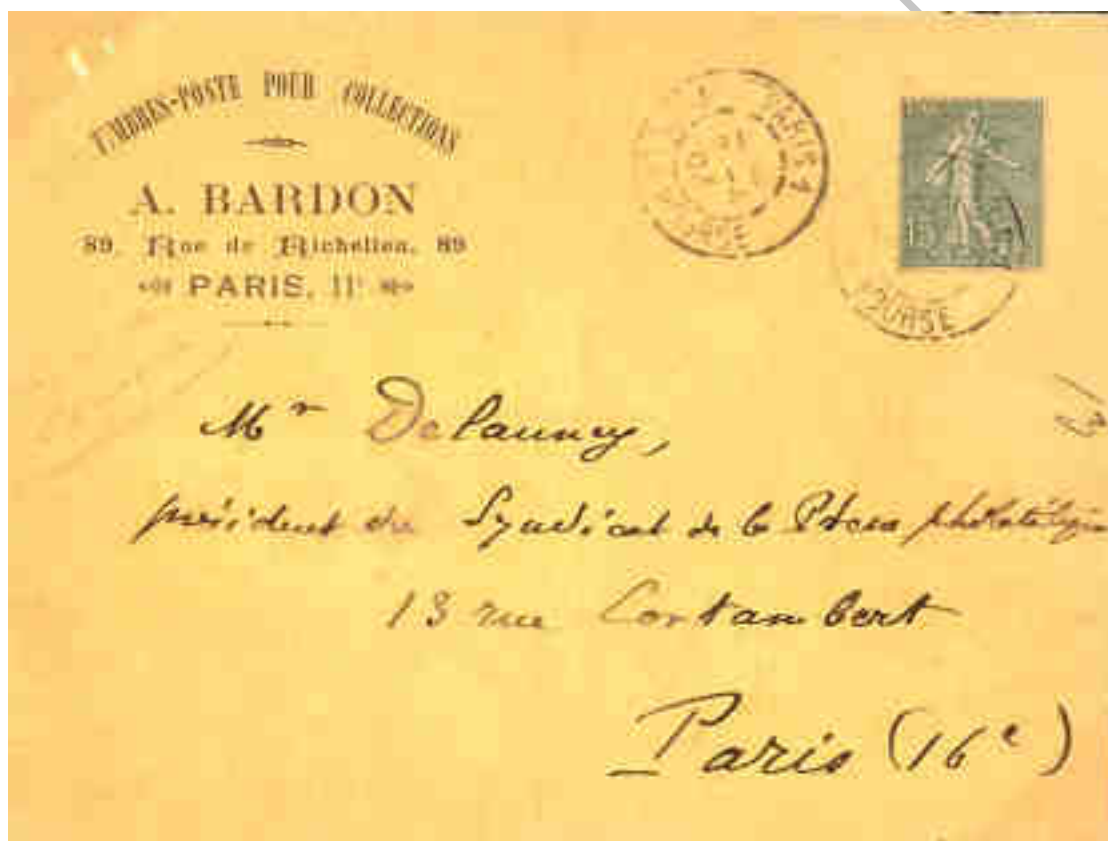 TIMBRES-POSTE POUR COLLECTIONS
A. BARDON
89, Rue de Richelieu, 89
PARIS, IIᵉ
PARIS 1
BOURSE
15
BOURSE
Mr Delaunay,
président du Syndicat de la Presse philatélique
13 rue Cortambert
Paris (16e)